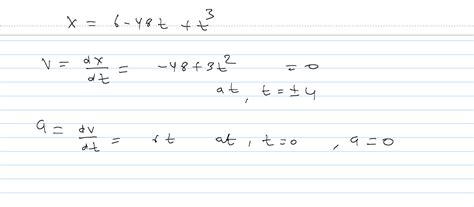 x = 6-48t + t³
v = dx/dt = -48+3t² = 0
at, t = ±4
a = dv/dt = 6t at, t=0 , a=0